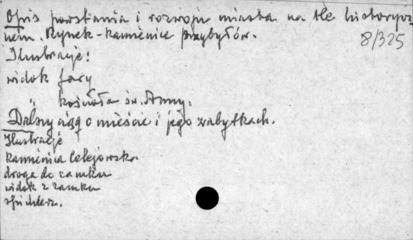 Opis powstania i rozwoju miasta na tle historycz-
nem. Rynek - kamienice przybyłów.
8/325
Ilustracje:
widok fary
" kościoła św. Anny.
Dalszy ciąg o mieście i jego zabytkach.
Ilustracje
kamienica Celejowska
droga do zamku
widok z zamku
spichlerz.